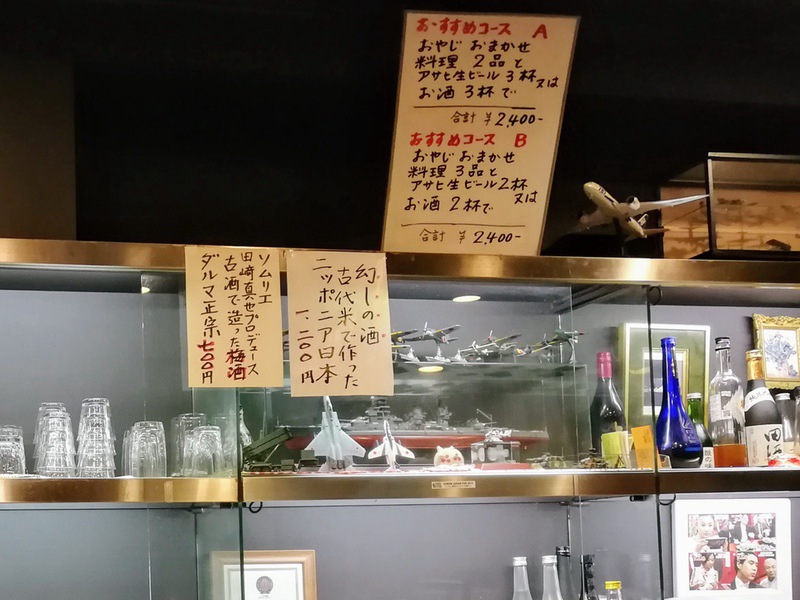 おすすめコース A
おやじ おまかせ
料理 2品と
アサヒ生ビール 3杯又は
お酒 3杯で
合計 ¥2,400-
おすすめコース B
おやじ おまかせ
料理 3品と
アサヒ生ビール 2杯又は
お酒 2杯で
合計 ¥2,400-
ソムリエ
田崎真也プロデュース
古酒で造った梅酒
ダルマ正宗 七〇〇円
幻しの酒
古代米で作った
ニッポニア日本
一、二〇〇円